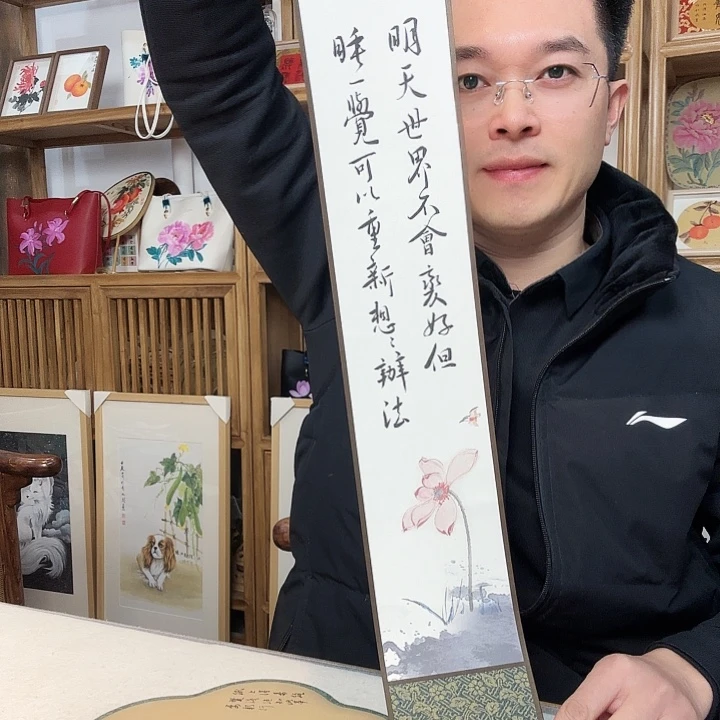 明天世界不會變好但
睡一覺可以重新想想辦法